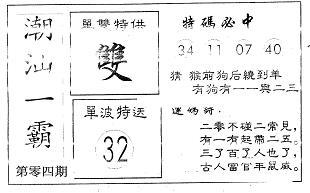 潮汕一霸
第零四期
單雙特供
雙
單波特送
32
特碼必中
34 11 07 40
猜 猴前狗后繞到羊
有狗有一一與二三
迷媽詩：
二零不碰二常見，
有一有起薦二五。
三了百了人也了，
古人富官年鼠威。